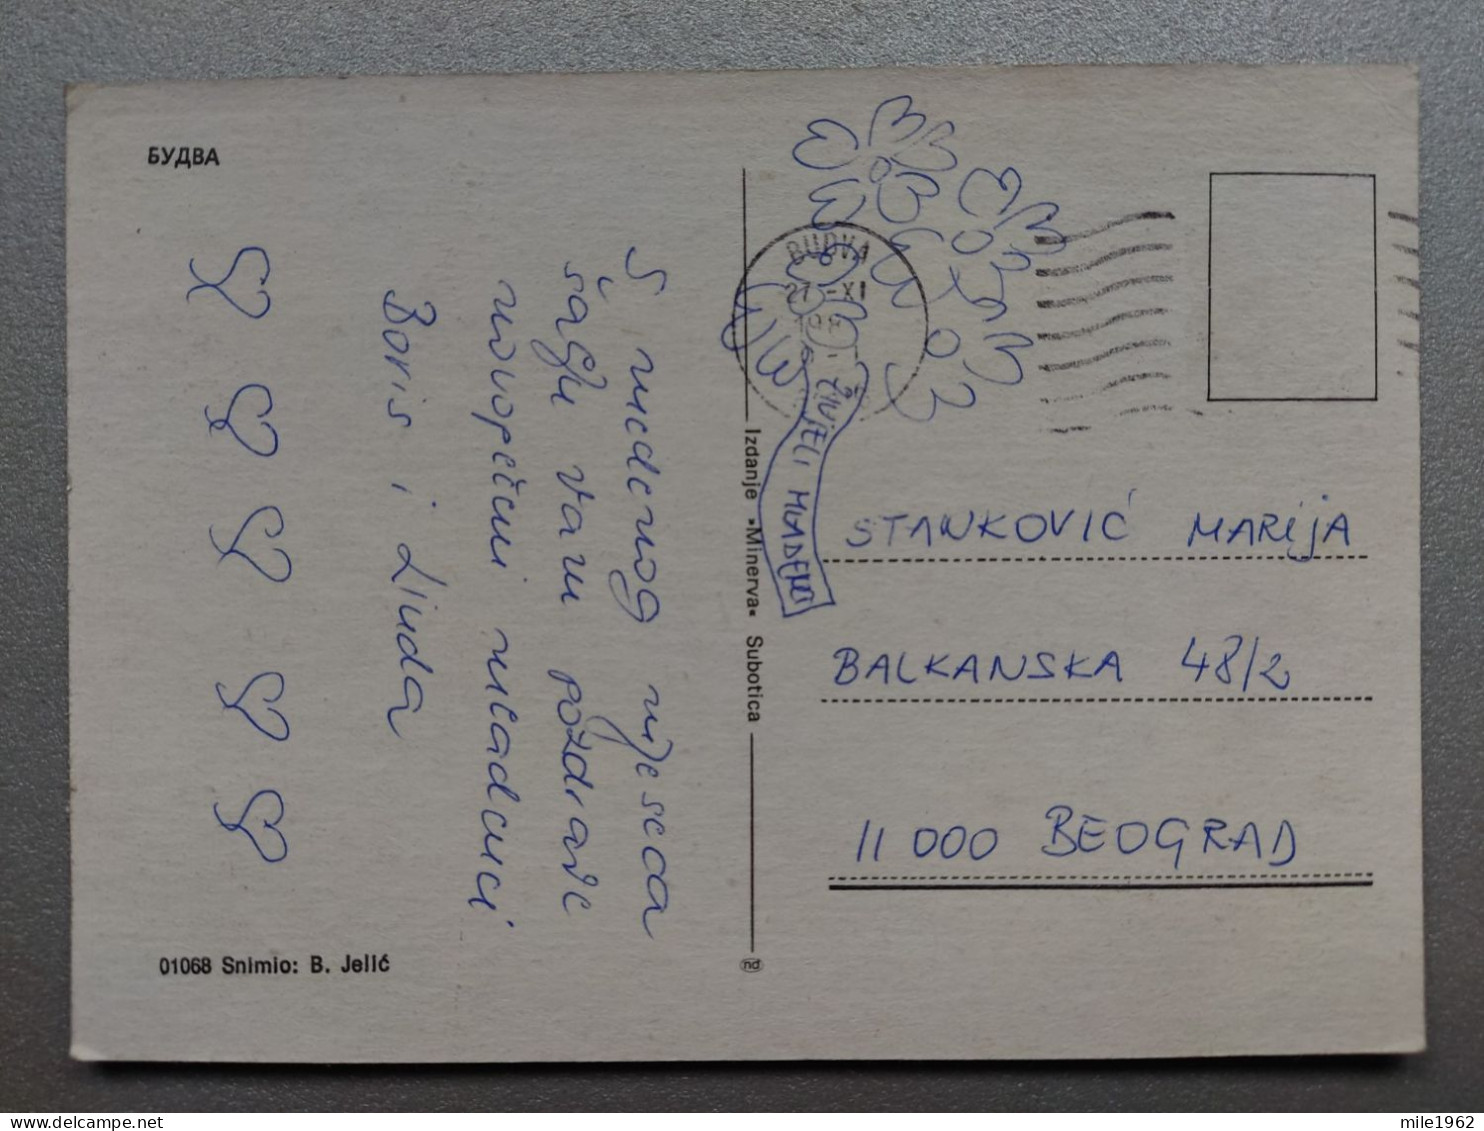 БУДВА
S medenog mjeseca
šalju vam pozdrave
novopečeni mladenci
Boris i Linda
01068 Snimio: B. Jelić
Izdanje »Minerva« Subotica
BUDVA
27 -XI
ŽIVJELI MLADENCI
STANKOVIĆ MARIJA
BALKANSKA 48/2
11 000 BEOGRAD
delcampe.net
mile1962